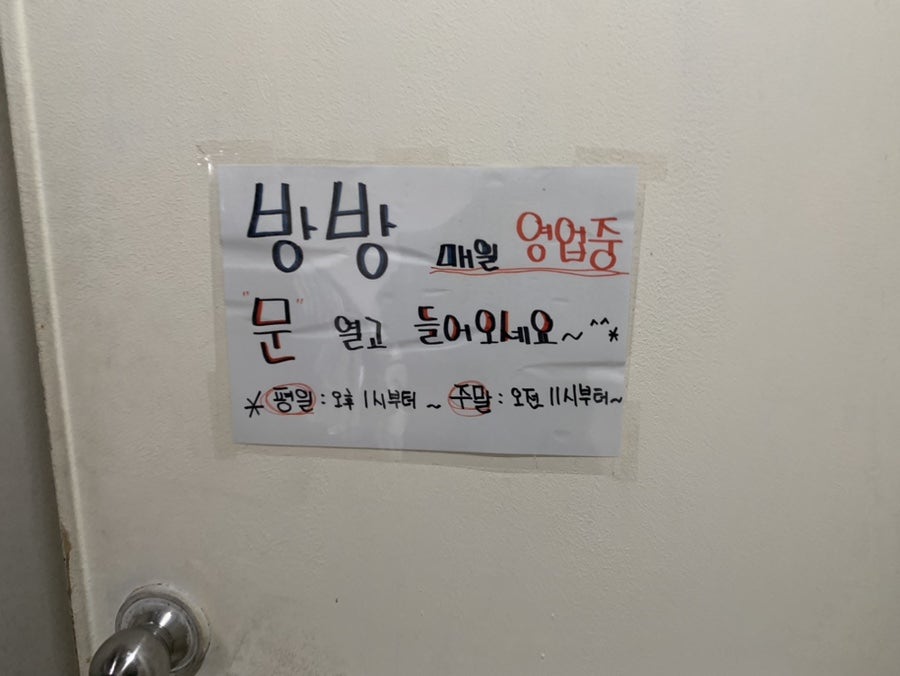 방방 매일 영업중
"문" 열고 들어오세요~^^*
* 평일 : 오후 1시부터 ~ 주말 : 오전 11시부터~